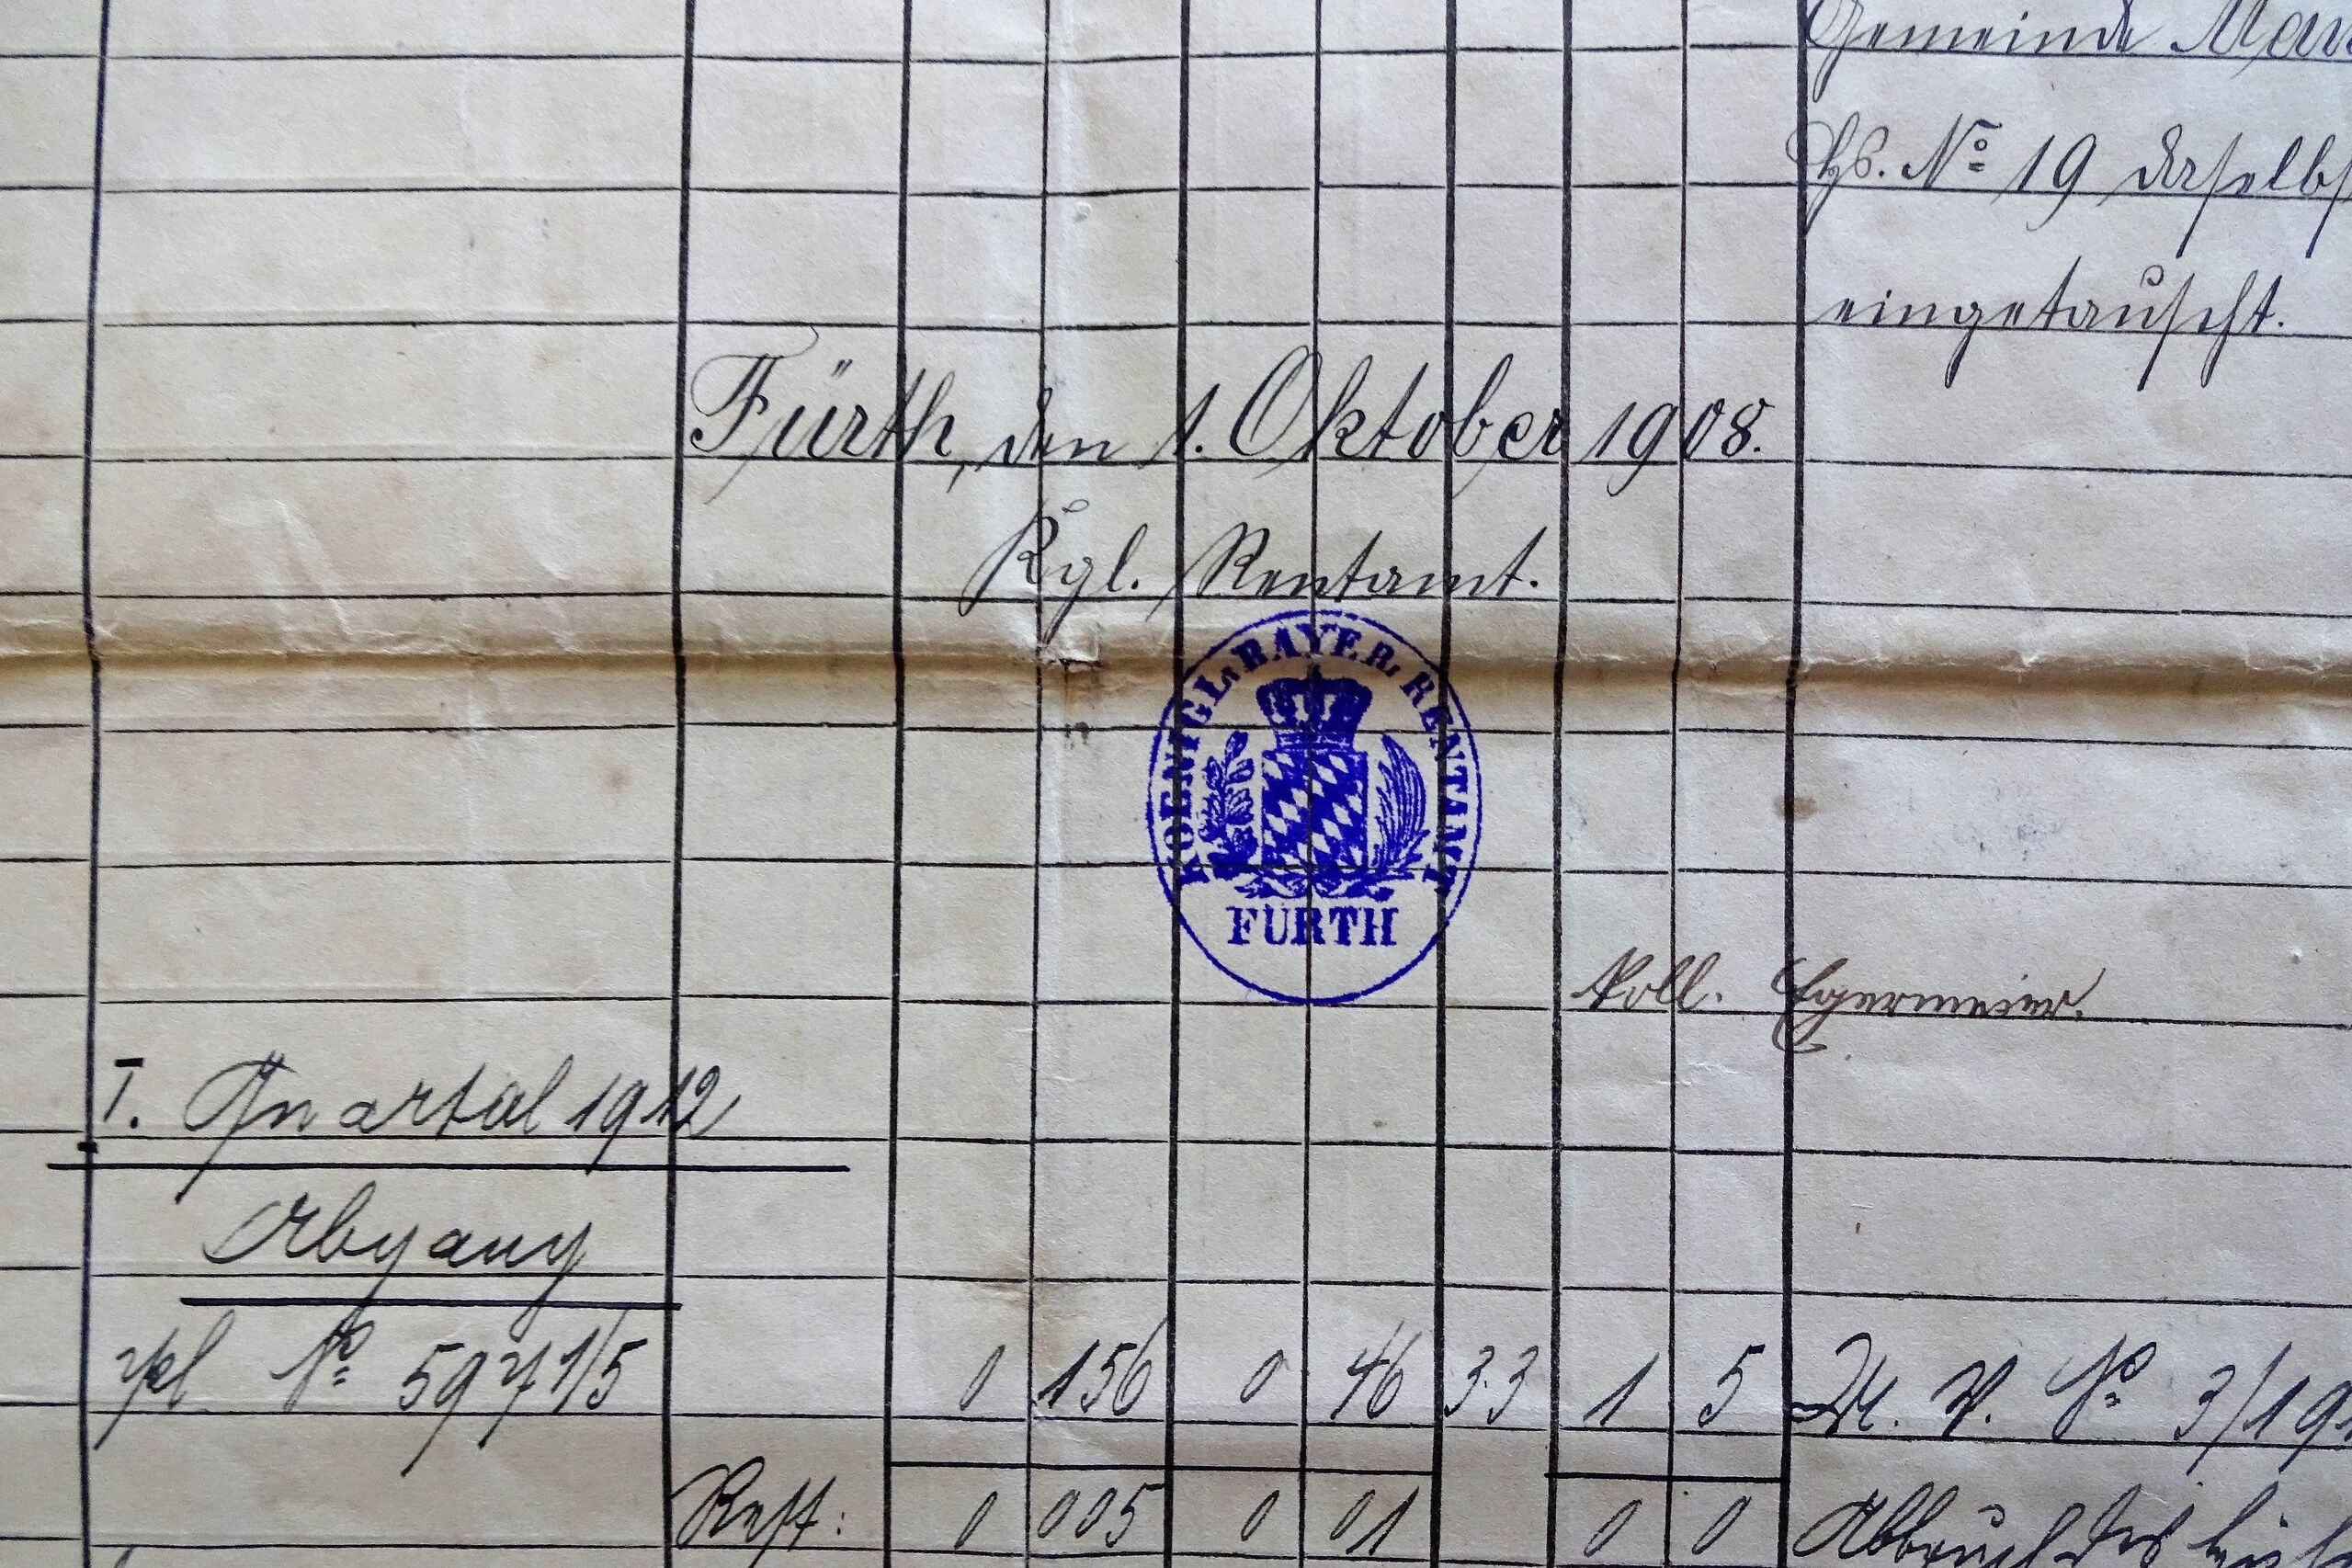 Gemeinde
Hs. No 19 daselbst
eingetauscht.
Fürth, den 1. Oktober 1908.
Kgl. Rentamt.
KOENIGL. BAYER. RENTAMT
FÜRTH
Egermeier.
I. Quartal 1912
Abgang
No 597 1/5 0 156 0 46 3.3 1 5 No 3/19
Rest: 0 005 0 01 0 0 Abbruch des